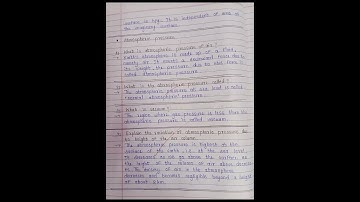 surface is hρg. It is independent of area of
the imaginary surface.
• Atmospheric pressure
Q. What is atmospheric pressure of air?
→ Earth's atmosphere is made up of a fluid,
mainly air. It exerts a downward force due to
its weight. The pressure due to this force is
called atmospheric pressure.
Q. What is the atmospheric pressure called?
→ The atmospheric pressure at sea level is called
"normal atmospheric pressure".
Q. What is vacuum?
→ The space where air pressure is less than the
atmospheric pressure is called vacuum.
Q. Explain the variation of atmospheric pressure due
to height of the air column.
→ The atmospheric pressure is highest on the
surface of the earth, i.e. at the sea level.
It decreases as we go above the surface as
the height of the column of air above decreases.
The density of air in the atmosphere
decreases and becomes negligible beyond a height
of about